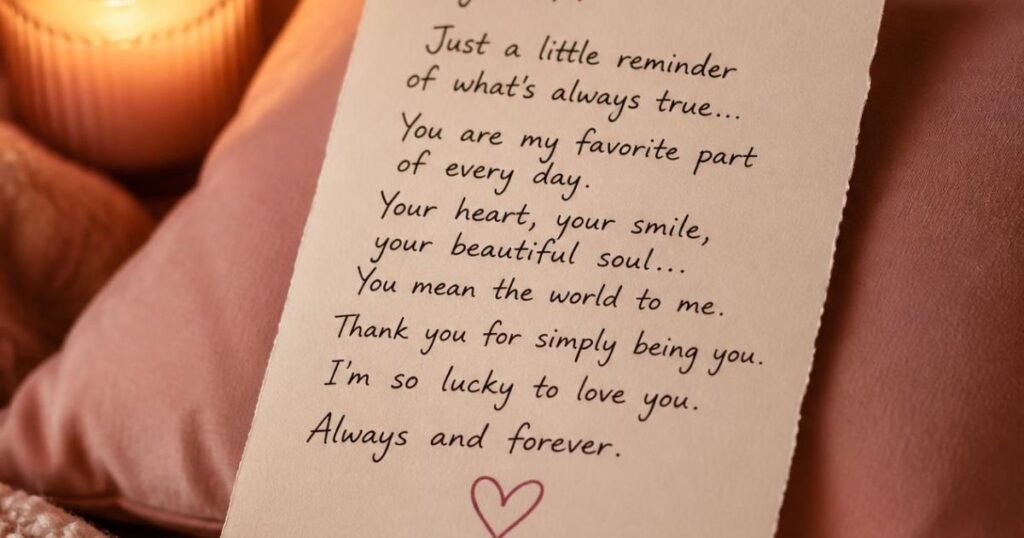 Just a little reminder
of what's always true...
You are my favorite part
of every day.
Your heart, your smile,
your beautiful soul...
You mean the world to me.
Thank you for simply being you.
I'm so lucky to love you.
Always and forever.